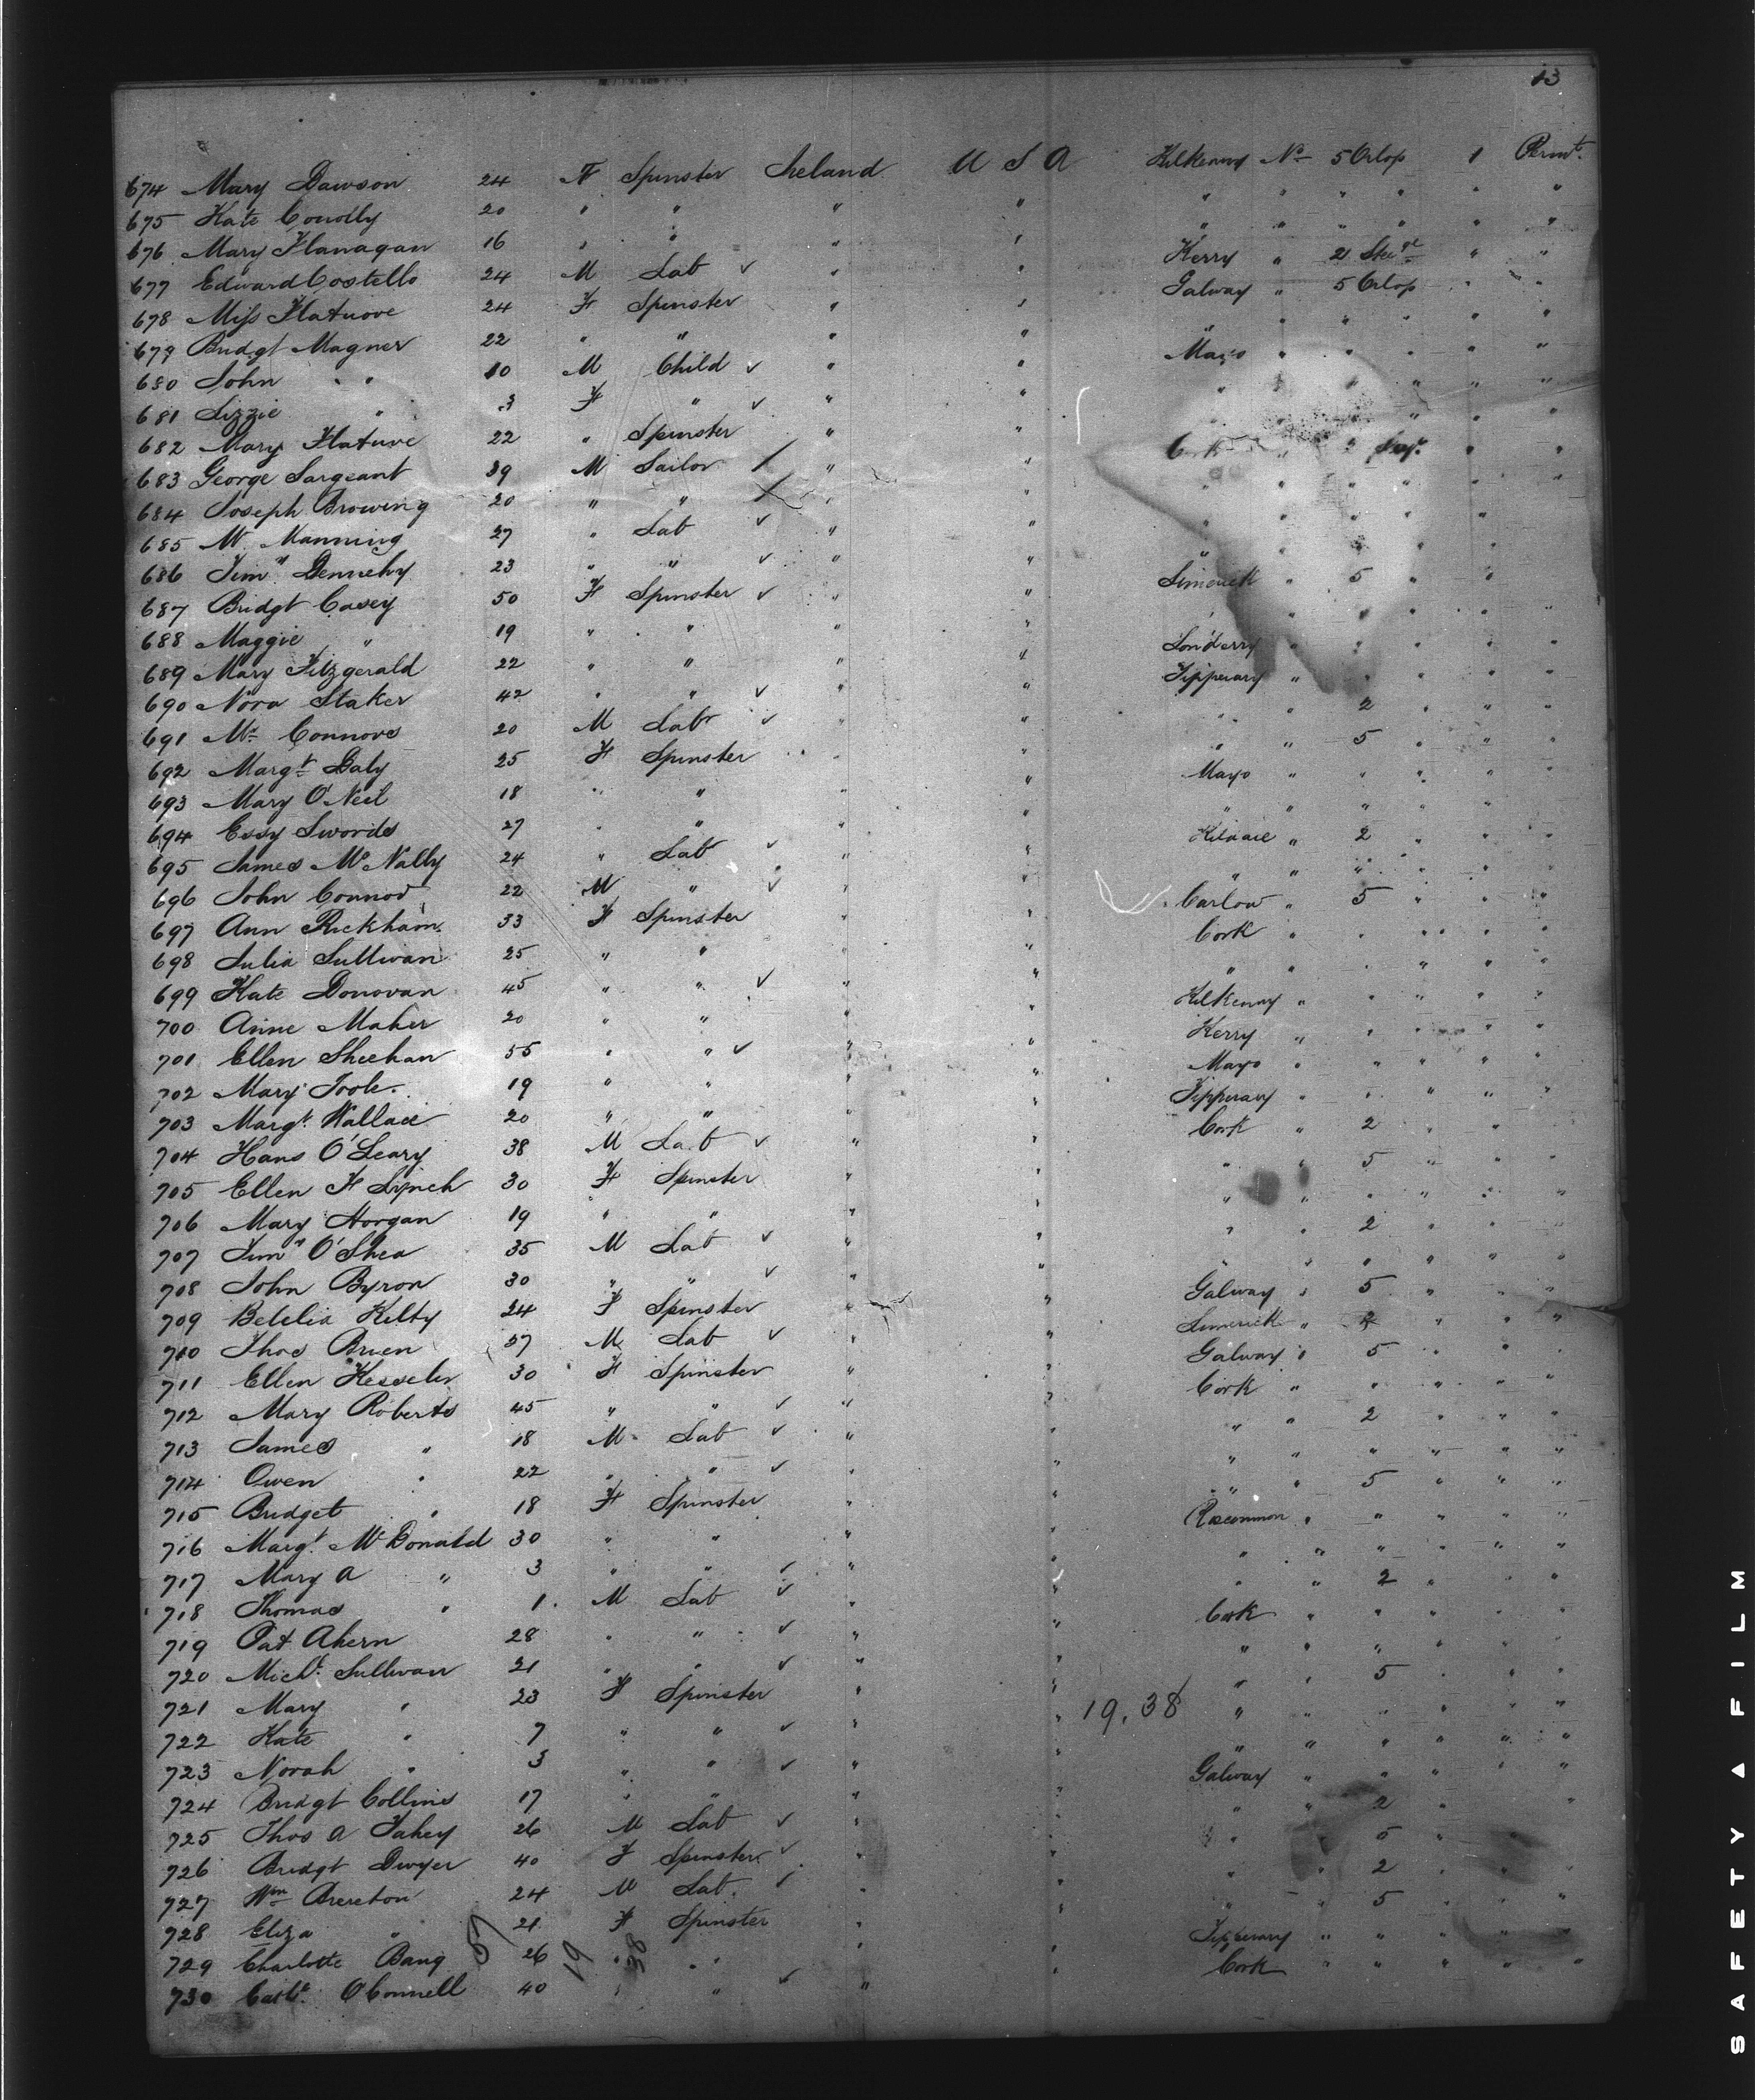 13
674 Mary Dawson 24 F Spinster Ireland U S A Kilkenny No 5 Orlop 1 Permt.
675 Kate Conolly 20 " " " " " " " " " "
676 Mary Flanagan 16 " " " " " " " " " "
677 Edward Costello 24 M Lab ✓ " " Kerry " 2 Steege " "
678 Miss Flatuove 24 F Spinster " " Galway " 5 Orlop " "
679 Bridgt Magner 22 " " " " " " " " " "
680 John " " 10 M Child ✓ " " Mayo " " " " "
681 Lizzie " 3 F " ✓ " " " " " "
682 Mary Flatuve 22 " Spinster " " " "
683 George Sargeant 39 M Sailor / " " Cork " 2 " "
684 Joseph Browing 20 " " / " " " " " " "
685 M. Manning 27 " Lab ✓ " " " " " "
686 Timy Dennehy 23 " " ✓ " " " " "
687 Bridgt Casey 50 F Spinster ✓ " " Limerick " 5 " "
688 Maggie " 19 " " " " " " " " "
689 Mary Fitzgerald 22 " " " " Londerry " " " "
690 Nora Staker 42 " " ✓ " " Tipperary " " " " "
691 Mr Connors 20 M Lab ✓ " " " " 2 " " "
692 Margt Daly 25 F Spinster " " " " 5 " " "
693 Mary O'Neil 18 " " " " Mayo " " " " "
694 Essy Swords 27 " " " " " " " " " "
695 James McNally 24 " Lab ✓ " " Kildare " 2 " " "
696 John Connor 22 M " ✓ " " " " " " " "
697 Ann Rickham 33 F Spinster " " Carlow " 5 " " "
698 Julia Sullivan 25 " " " " Cork " " " " "
699 Kate Donovan 45 " " ✓ " " " " " " " "
700 Anne Maher 20 " " " " Kilkenny " " " " "
701 Ellen Sheehan 55 " " ✓ " " Kerry " " " " "
702 Mary Toole. 19 " " " " Mayo " " " " "
703 Margt. Wallace 20 " " " " Tipperary " " " " "
704 Hans O'Leary 38 M Lab ✓ " " Cork " 2 " "
705 Ellen F Lynch 30 F Spinster " " " " 5 " " "
706 Mary Horgan 19 " " " " " " " " " "
707 Timy O'Shea 35 M Lab ✓ " " " " 2 " " "
708 John Byron 30 " " ✓ " " " " " " " "
709 Bedelia Kelty 24 F Spinster " " Galway " 5 " " "
710 Thos Brien 37 M Lab ✓ " " Limerick " 2 " " "
711 Ellen Kesseler 30 F Spinster " " Galway " 5 " " "
712 Mary Roberts 45 " " ✓ " " Cork " " " " "
713 James " 18 M Lab ✓ " " " " 2 " " "
714 Owen " 22 " " ✓ " " " " " " " "
715 Bridget " 18 F Spinster " " " " 5 " " "
716 Margt. McDonald 30 " " " " Roscommon " " " " "
717 Mary A " 3 " " ✓ " " " " " " " "
718 Thomas " 1 M Lab ✓ " " " " 2 " " "
719 Pat Ahern 28 " " ✓ " " Cork " " " " "
720 Michl. Sullivan 21 " " ✓ " " " " " " " "
721 Mary " 23 F Spinster " " " " 5 " " "
19.38
722 Kate " 7 " " ✓ " " " " " " " "
723 Norah " 3 " " ✓ " " " " " " " "
724 Bridgt Collins 17 " " " " Galway " " " " "
725 Thos A Fahey 26 M Lab ✓ " " " " 2 " "
726 Bridgt Dwyer 40 F Spinster ✓ " " " 5 " "
727 Wm Brereton 24 M Lab ✓ " " " " 2 " "
728 Eliza " 21 F Spinster " " " " 5 " " "
729 Charlotte Bang 26 " " " " Tipperary " " " " "
730 O'Connell 40 " " ✓ " " Cork " " " " "
57 19 38
SAFETY ▲ FILM